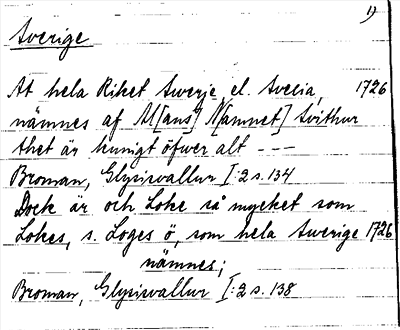 1)
Sverige
At hela Riket Swerje, el. Svecia, 1726
nämnes af M[ans] N[amnet] Svithur
thet är kunigt öfwer alt ---
Broman, Glysisvallur I:2 s. 134
Dock är och Loke så mycket som
Lokes, s. Loges ö, som hela Swerige 1726
nämnes;
Broman, Glysisvallur I:2 s. 138